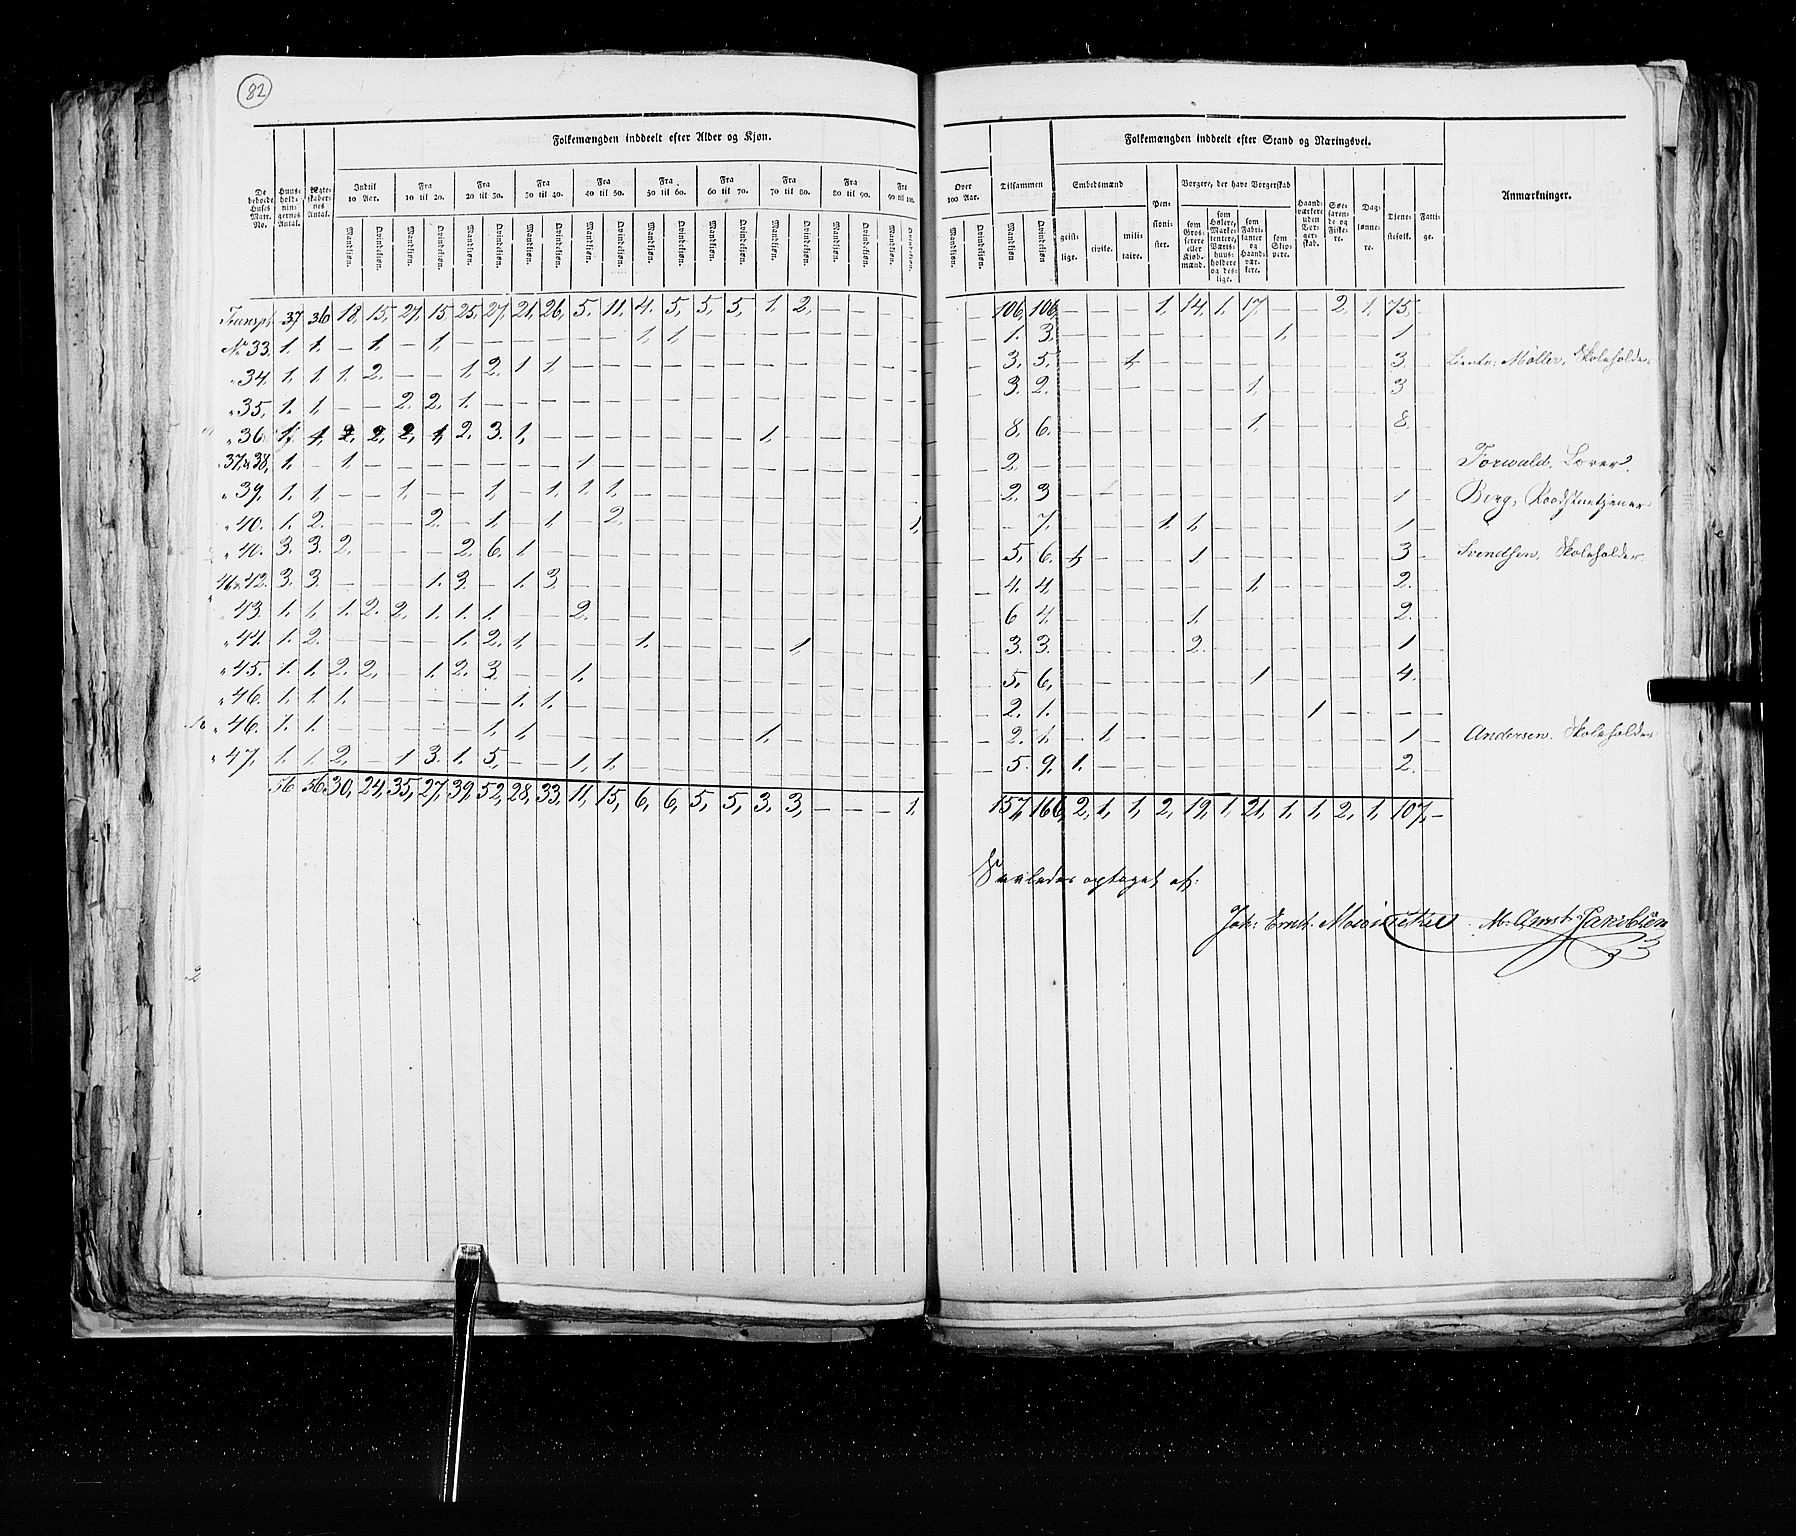 82
Folkemængden inddeelt efter Alder og Kjøn.
Folkemængden inddeelt efter Stand og Næringsvei.
De beboede Huses Matr. No.
Huus-holdnin-gernes Antal.
Ægte-skaber-nes Antal.
Indtil 10 Aar.
Fra 10 til 20.
Fra 20 til 30.
Fra 30 til 40.
Fra 40 til 50.
Fra 50 til 60.
Fra 60 til 70.
Fra 70 til 80.
Fra 80 til 90.
Fra 90 til 100.
Over 100 Aar.
Tilsammen
Mandkjøn. Qvindekjøn.
Embedsmænd
geist-lige. civile. mili-taire.
Pen-sioni-ster.
Borgere, der have Borgerskab
som Gros-serere eller Kjøb-mænd.
som Høkere, Marke-tentere, Værts-huus-holdere og des-lige.
som Fabri-kanter og Haand-vær-kere.
som Skip-pere.
Haand-værkere uden Bor-ger-skab.
Søe-farende og Fiske-re.
Dag-lønne-re.
Tjene-stefolk.
Fatti-ge.
Anmærkninger.
Transpt. 37 36 18, 15, 27, 15 25, 27, 21, 26, 5, 11, 4, 5, 5, 5, 1, 2, — — — 106, 106, — — — 1, 14, 1, 17, — — 2, 1, 75, —
No 33. 1. 1. — 1. — 1. — — — — — — 1. 1. — — — — — — — 1. 3. — — — — — — — 1. — — — 1 —
" 34. 1. 1. 1. 2. — — 1. 2. 1. 1. — — — — — — — — — — — 3. 5. — — 1. — — — — — — — — 3. — Lieutn: Møller, Skoleholder
" 35, 1. 1, — — 2. 2. 1. — — — — — — — — — — — — — — 3. 2. — — — — — — 1. — — — — 3 —
" 36. 1. 1. 2. 2. 2. 1. 2. 3. 1. — — — — — — — 1. — — — — 8. 6. — — — — — — 1. — — — — 8. —
" 37 & 38, 1. — 1. — — — — — — — 1. — — — — — — — — — — 2. — — — — — — — — — — — — — —
" 39. 1. 1. — — 1. — — 1. — 1. 1. 1. — — — — — — — — — 2. 3 — — — — — — — — — — — 1 — Berg,
" 40. 1. 2. — — — 2. — 1. — 1. — 2. — — — — — — — — 1. — 7. — — — 1. 1. — — — — — — 1 —
" 40. 3. 3. 2. — — — 2. 6. 1 — — — — — — — — — — — — 5, 6. 1. — — — 1 — — — — — — 3 — Svendsen, Skoleholder.
3. 3. — — — 1. 3. — 1. 3. — — — — — — — — — — — 4. 4. — — — — — — 1. — — — — 2. —
" 43. 1. 1. 1. 2. 2. 1. 1. 1. — — 2. — — — — — — — — — — 6 4. — — — — 1. — — — — — — 2. —
" 44. 1. 2. — — — — 1. 2. 1. — — — 1. — — — — 1. — — — 3. 3. — — — — 2. — — — — — — 1 —
" 45. 1. 1. 2. 2. — 1. 2. 3. — — 1. — — — — — — — — — — 5, 6, — — — — — — 1 — — — — 4. —
" 46. 1. 1. 1. — — — — — 1. 1. — — — — — — — — — — — 2. 1. — — — — — — — — 1 — — — —
" 46. 1. 1. — — — — — 1. 1. — — — — — — — 1. — — — — 2. 1. — 1. — — — — — — — — — 1 — Andersen. Skoleholder
" 47, 1. 1. 2. — 1 3. 1. 5. — — 1. 1. — — — — — — — — — 5. 9. 1. — — — — — — — — — — 2. —
56 56 30, 24, 35, 27, 39, 52, 28, 33, 11, 15, 6, 6, 5, 5, 3, 3, — — — 1, 157, 166, 2, 1, 1, 2, 19, 1, 21, 1, 1, 2, 1, 107, —
Saaledes optaget af:
Joh: Ernst